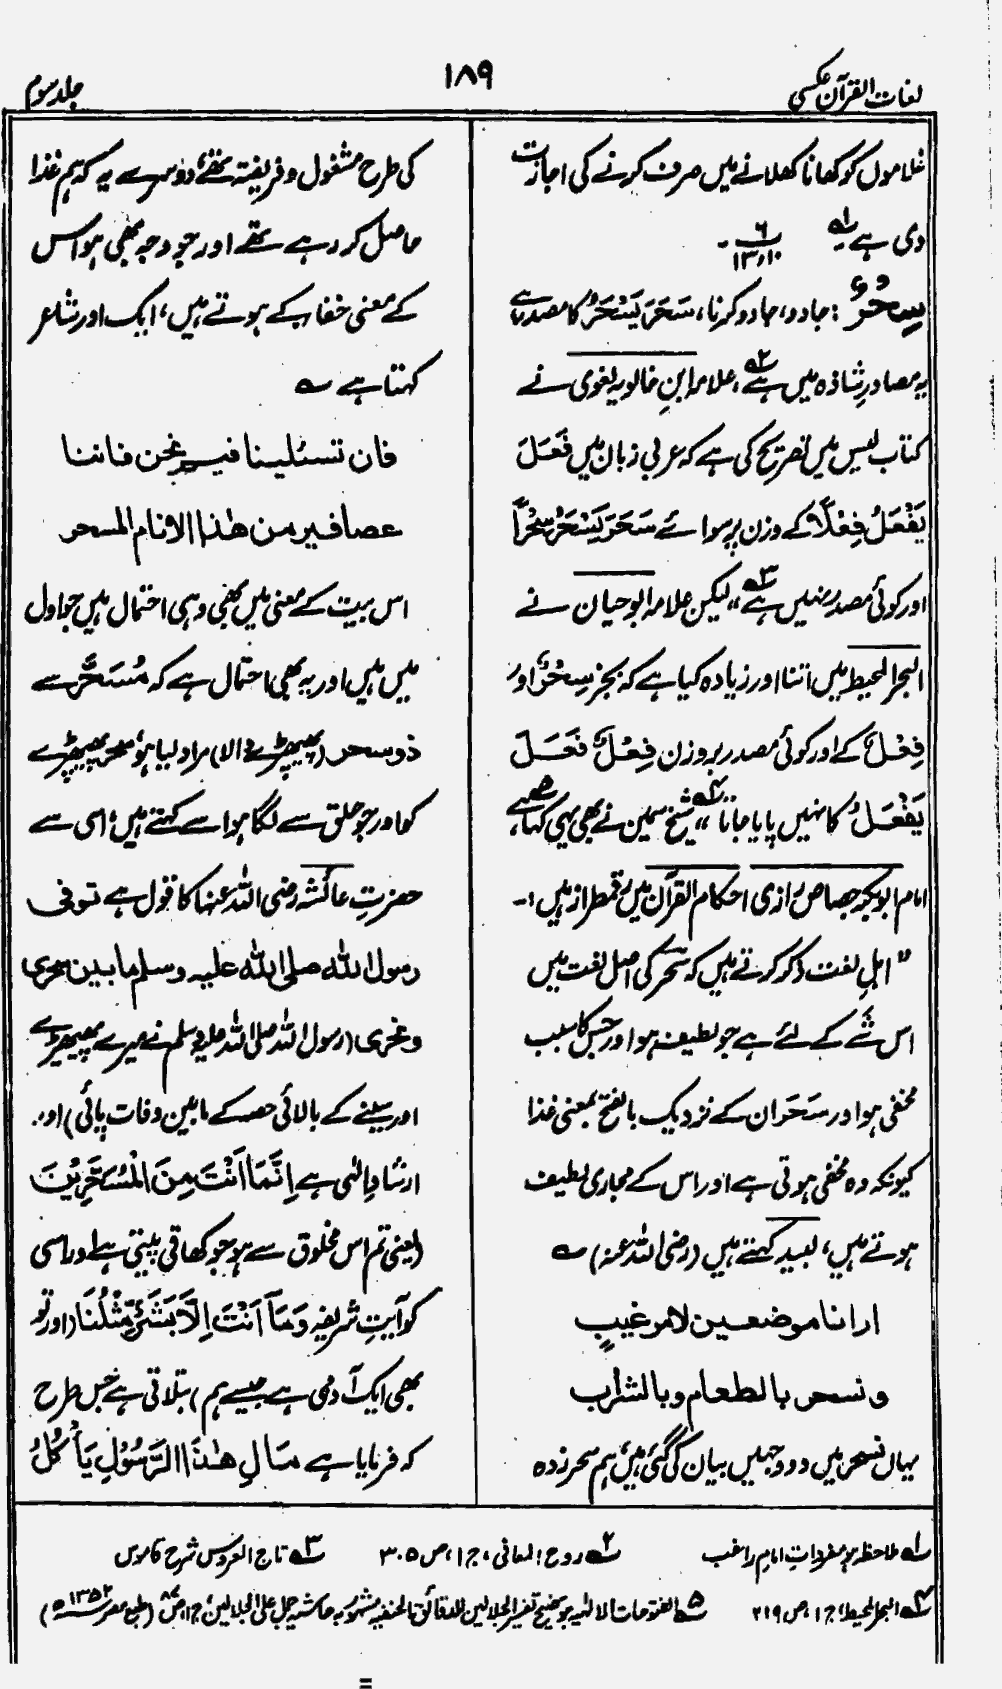 لغات القرآن عکسی
۱۸۹
جلد سوم
غلاموں کو کھانا کھلانے میں صرف کرنے کی اجازت
دی ہے ۱؎ پ ۶ ۱۳،۱۰ ۔
سِحْرٌ: جادو، جادو کرنا، سَحَرَ یَسْحَرُ کا مصدر ہے
یہ مصادرِ شاذہ میں ہے ۲؎، علامہ ابنِ خالویہ لغوی نے
کتاب لیس میں تصریح کی ہے کہ عربی زبان میں فَعَلَ
یَفْعَلُ فِعْلًا کے وزن پر سوائے سَحَرَ یَسْحَرُ سِحْرًا
اور کوئی مصدر نہیں ہے ۳؎" لیکن علامہ ابوحیان نے
البحر المحیط میں اتنا اور زیادہ کیا ہے کہ بجز سِحْرٌ اور
فِعْلٌ کے اور کوئی مصدر بروزن فِعْلٌ فَعَلَ
یَفْعَلُ کا نہیں پایا جاتا ۴؎" شیخ سمین نے بھی یہی کہا ہے ۵؎،
امام ابوبکر جصاص رازی احکام القرآن میں رقمطراز ہیں:۔
"اہلِ لغت ذکر کرتے ہیں کہ سحر کی اصل لغت میں
اس شَے کے لئے ہے جو لطیف ہو اور جس کا سبب
مخفی ہو اور سَحَر ان کے نزدیک بالفتح بمعنی غذا
کیونکہ وہ مخفی ہوتی ہے اور اس کے مجاری لطیف
ہوتے ہیں، لبید کہتے ہیں (رضی اللہ عنہ) ؎
ارانا موضعین لامر غیبٍ
ونسحر بالطعام وبالشراب
یہاں نسحر میں دو وجہیں بیان کی گئی ہیں، ہم سحر زدہ
کی طرح مشغول و فریفتہ تھے، دوسرے یہ کہ ہم غذا
حاصل کر رہے تھے اور جو وجہ بھی ہو اس
کے معنی خفا کے ہوتے ہیں، ایک اور شاعر
کہتا ہے ؎
فان تسئلینا فیم نحن فاننا
عصافیر من هٰذا الانام المسحر
اس بیت کے معنی میں بھی وہی احتمال ہیں جو اول
میں ہیں اور یہ بھی احتمال ہے کہ مُسَحَّر سے
ذوسحر (پھیپھڑے والا) مراد لیا ہو، سحر پھیپھڑے
کو اور جو حلق سے لگا ہو اسے کہتے ہیں، اسی سے
حضرتِ عائشہ رضی اللہ عنہا کا قول ہے توفی
رسول اللہ صلی اللہ علیہ وسلم مابین سحری
ونحری (رسول اللہ صلی اللہ علیہ وسلم نے میرے پھیپھڑے
اور سینے کے بالائی حصہ کے مابین وفات پائی) اور
ارشادِ الٰہی ہے اِنَّمَا اَنْتَ مِنَ الْمُسَحَّرِیْنَ
(یعنی تم اس مخلوق سے ہو جو کھاتی پیتی ہے) اور اسی
کو آیتِ شریفہ وَمَآ اَنْتَ اِلَّا بَشَرٌ مِّثْلُنَا (اور تو
بھی ایک آدمی ہے جیسے ہم) بتلاتی ہے جس طرح
کہ فرمایا ہے مَالِ هٰذَا الرَّسُوْلِ یَاْکُلُ
۱؎ ملاحظہ ہو مفرداتِ امام راغب
۲؎ روح المعانی، ج ۱، ص ۳۰۵
۳؎ تاج العروس شرح قاموس
۴؎ البحر المحیط، ج ۱، ص ۲۱۹
۵؎ الفتوحات الالٰہیہ بتوضیح تفسیر الجلالین للدقائق الخفیہ مشہور بہ حاشیہ جمل علی الجلالین، ج ۱، ص (طبع مصر ۱۳۵۲ھ)